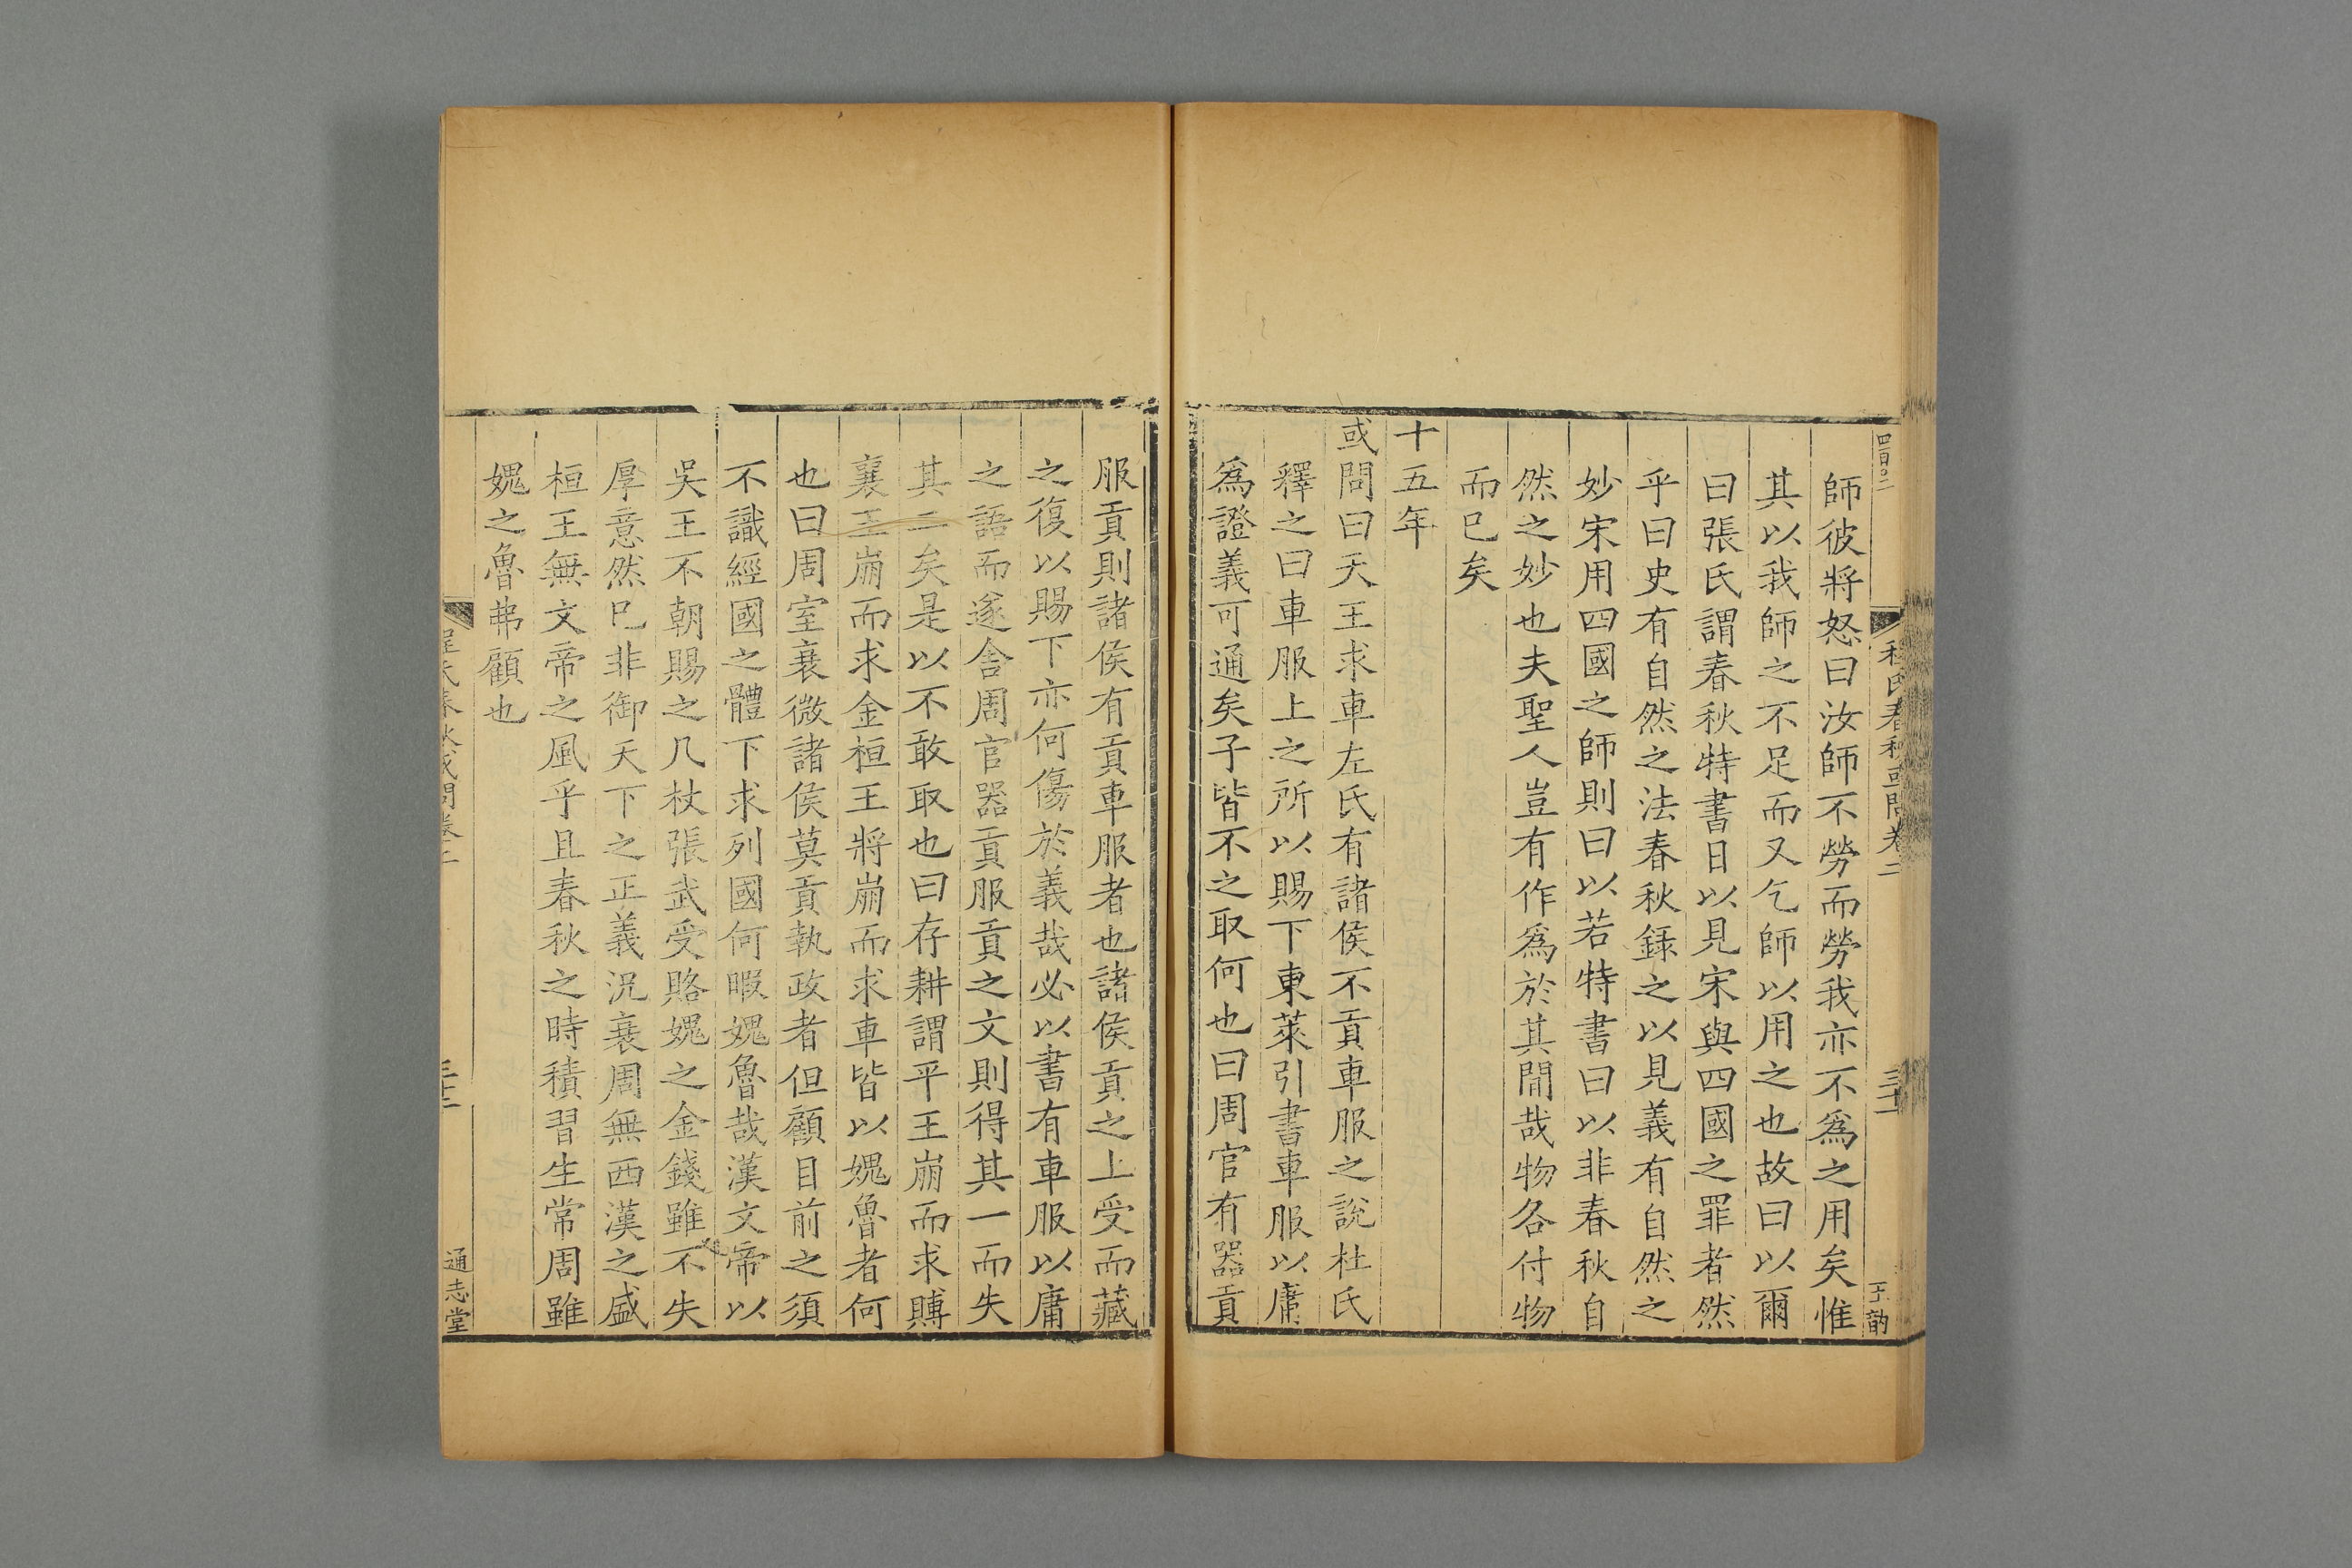 師彼將怒曰汝師不勞而勞我亦不爲之用矣惟
其以我師之不足而又乞師以用之也故曰以爾
曰張氏謂春秋特書曰以見宋與四國之罪者然
乎曰史有自然之法春秋錄之以見義有自然之
妙宋用四國之師則曰以若特書曰以非春秋自
然之妙也夫聖人豈有作爲於其間哉物各付物
而已矣
十五年
或問曰天王求車左氏有諸侯不貢車服之說杜氏
釋之曰車服上之所以賜下東萊引書車服以庸
爲證義可通矣子皆不之取何也曰周官有器貢
服貢則諸侯有貢車服者也諸侯貢之上受而藏
之復以賜下亦何傷於義哉必以書有車服以庸
之語而遂舍周官器貢服貢之文則得其一而失
其二矣是以不敢取也曰存耕謂平王崩而求賻
襄王崩而求金桓王將崩而求車皆以媿魯者何
也曰周室衰微諸侯莫貢執政者但顧目前之須
不識經國之體下求列國何暇媿魯哉漢文帝以
吳王不朝賜之几杖張武受賂媿之金錢雖不失
厚意然已非御天下之正義況衰周無西漢之盛
桓王無文帝之風乎且春秋之時積習生常周雖
媿之魯弗顧也
程氏春秋或問卷二
通志堂